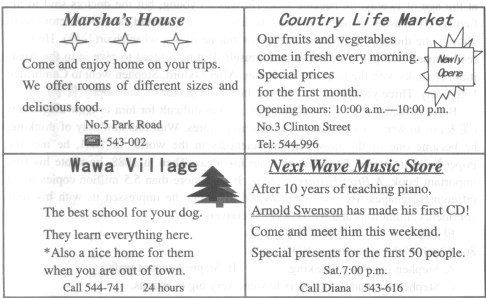 Marsha's House
Come and enjoy home on your trips.
We offer rooms of different sizes and
delicious food.
No.5 Park Road
543-002
Country Life Market
Our fruits and vegetables
come in fresh every morning.
Special prices
for the first month.
Newly
Opene
Opening hours: 10:00 a.m.—10:00 p.m.
No.3 Clinton Street
Tel: 544-996
Wawa Village
The best school for your dog.
They learn everything here.
*Also a nice home for them
when you are out of town.
Call 544-741 24 hours
Next Wave Music Store
After 10 years of teaching piano,
Arnold Swenson has made his first CD!
Come and meet him this weekend.
Special presents for the first 50 people.
Sat.7:00 p.m.
Call Diana 543-616